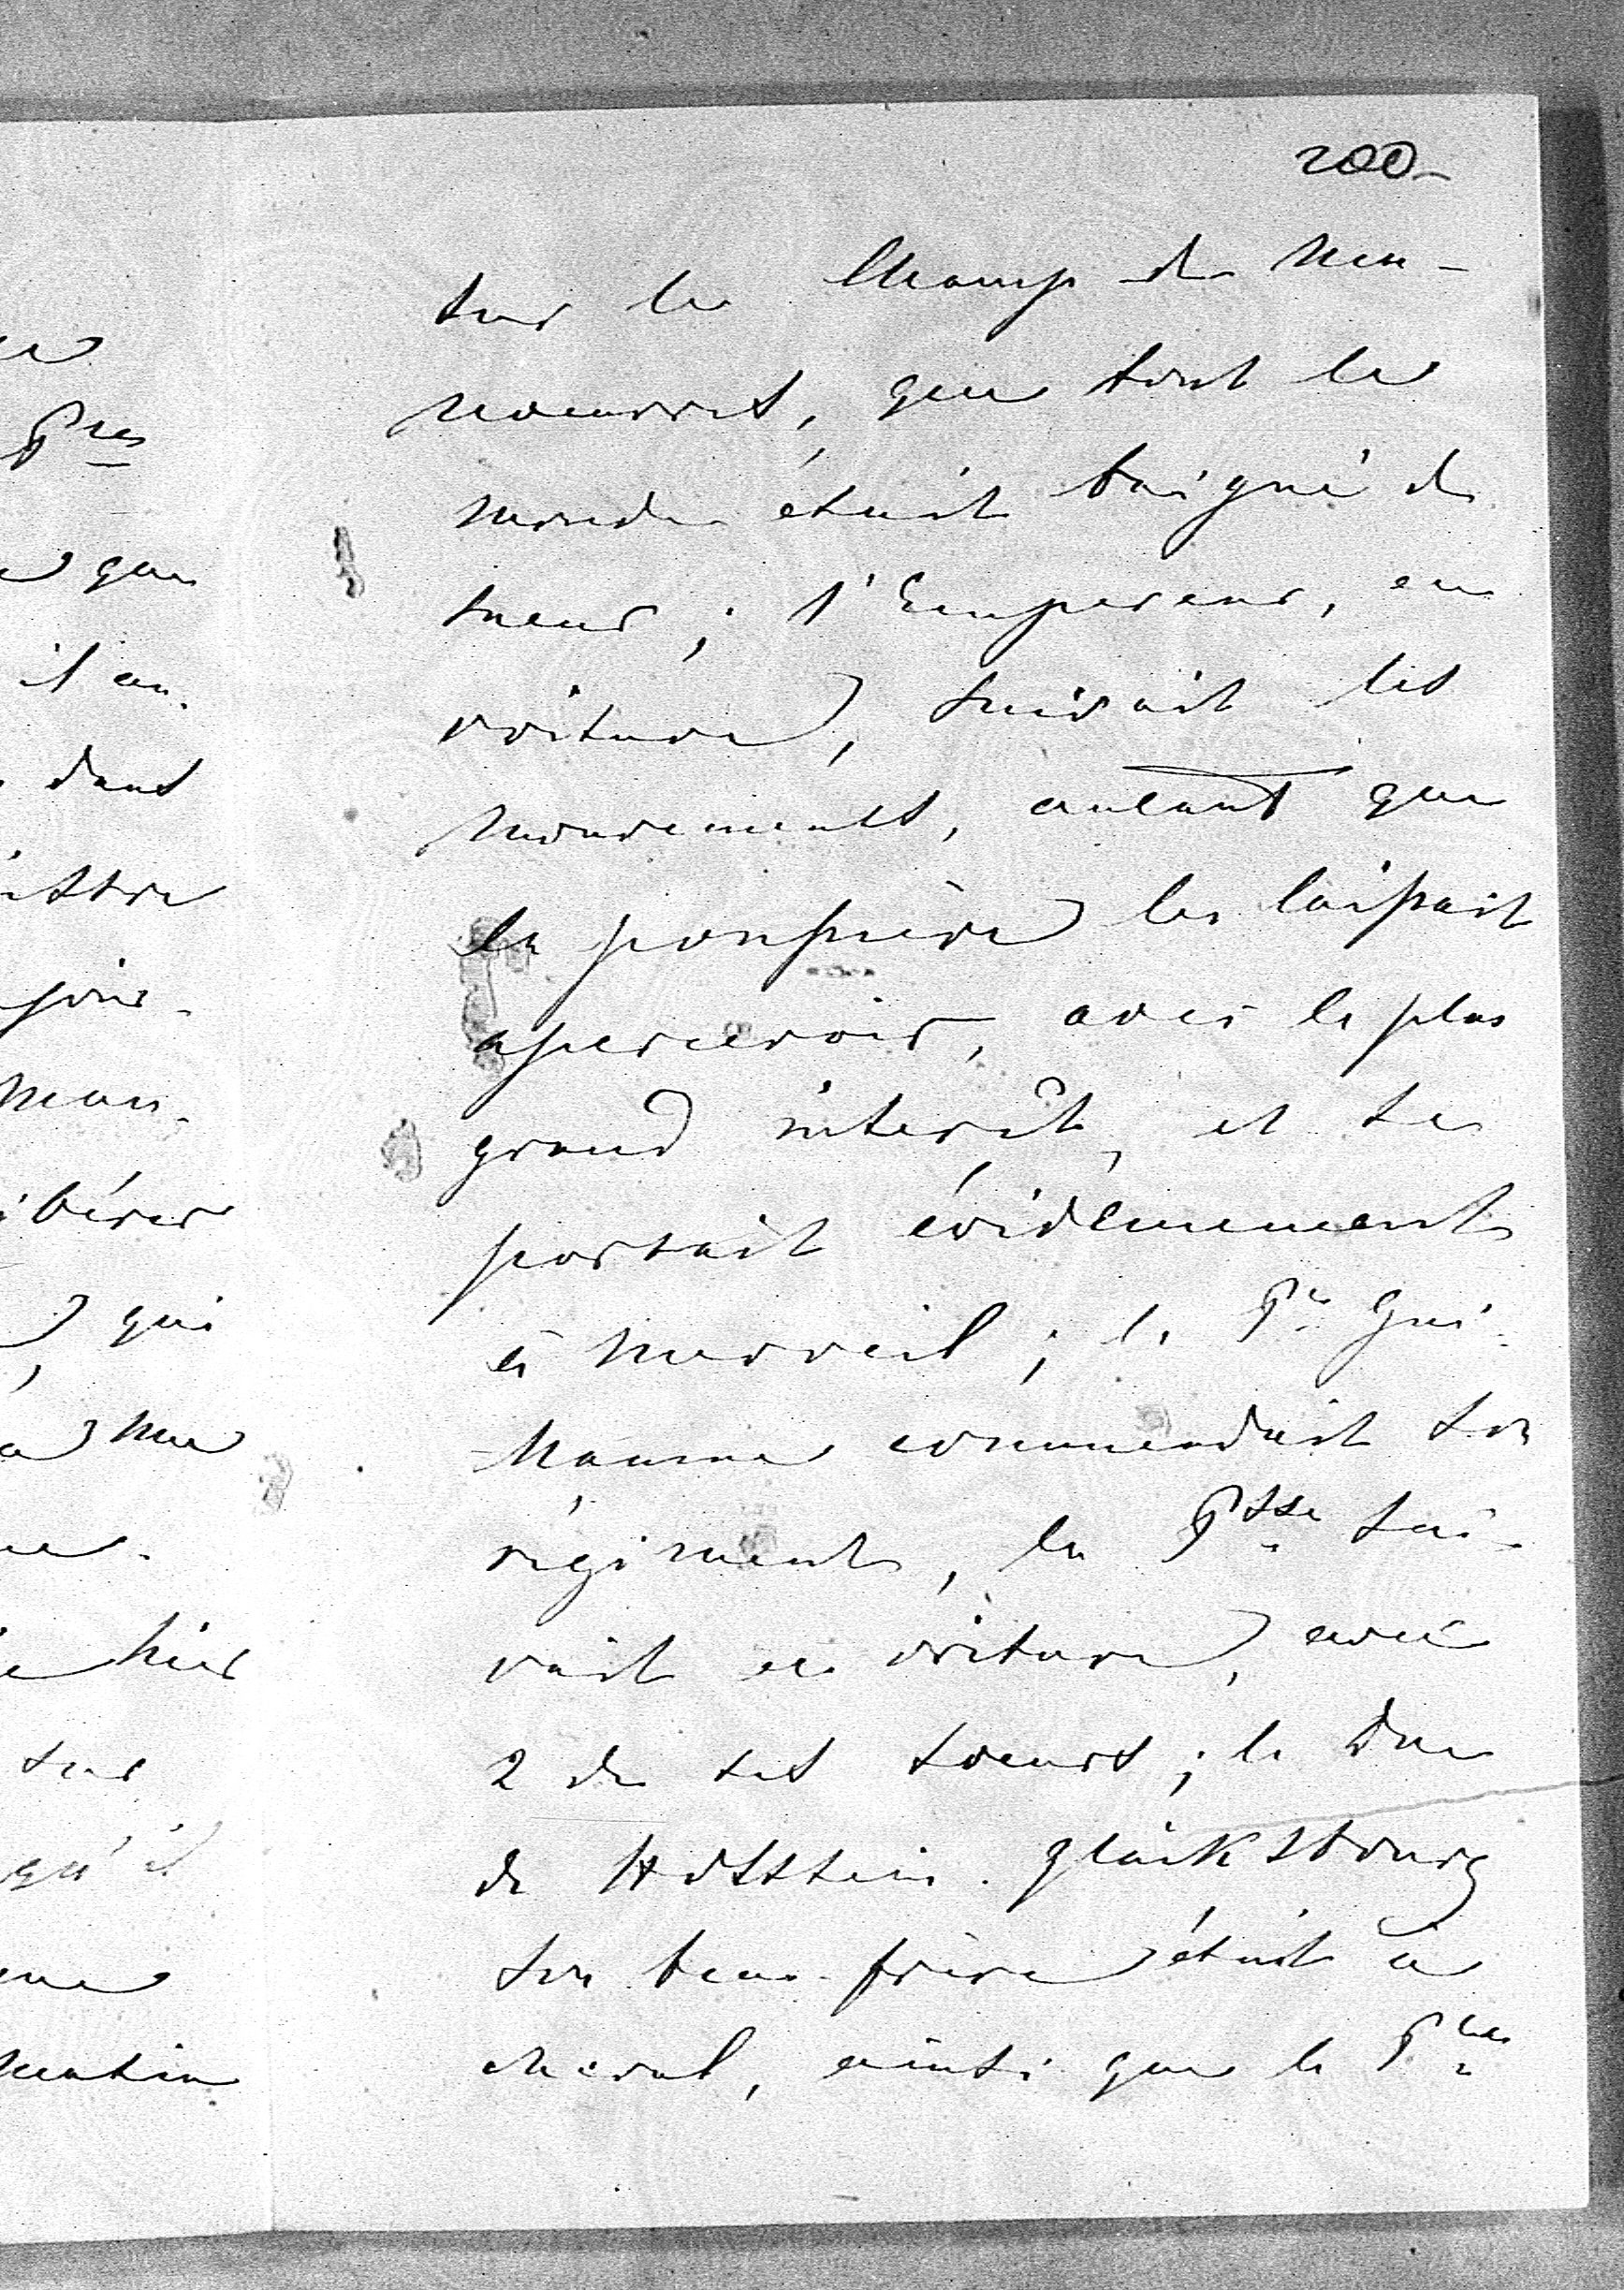 200
sur le Champ de Mon-
noeuvres, que tout le
monde était baigné de
sueur; l'Empereur, en
voiture, suivait les
mouvements, autant que
la poussière les laissait
apercevoir, avec le plus
grand intérêt, et se
portait évidemment
à merveil; le Pce Gui-
-llaume commandait son
régiment, la Psse sui-
vait en voiture, avec
2 de ses soeurs; le Duc
de Holstein-Glücksbourg
son beau-frère était à
cheval, ainsi que le Pce
Pces
que
il en
dans
jour-
man-
qui
me
hier
sur
qu'il
matin